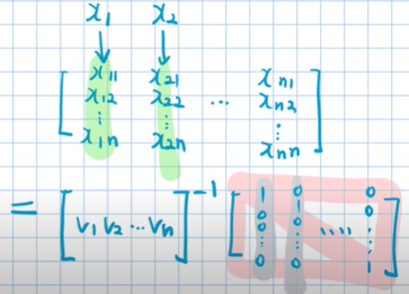 x₁ x₂
x₁₁ x₂₁ xₙ₁
x₁₂ x₂₂ ... xₙ₂
⋮ ⋮ ⋮
x₁ₙ x₂ₙ xₙₙ
= [v₁ v₂ ... vₙ]⁻¹ [
1 0 0
0 1 0
0 0 .... ⋮
⋮ ⋮ ⋮
0 0 1
]